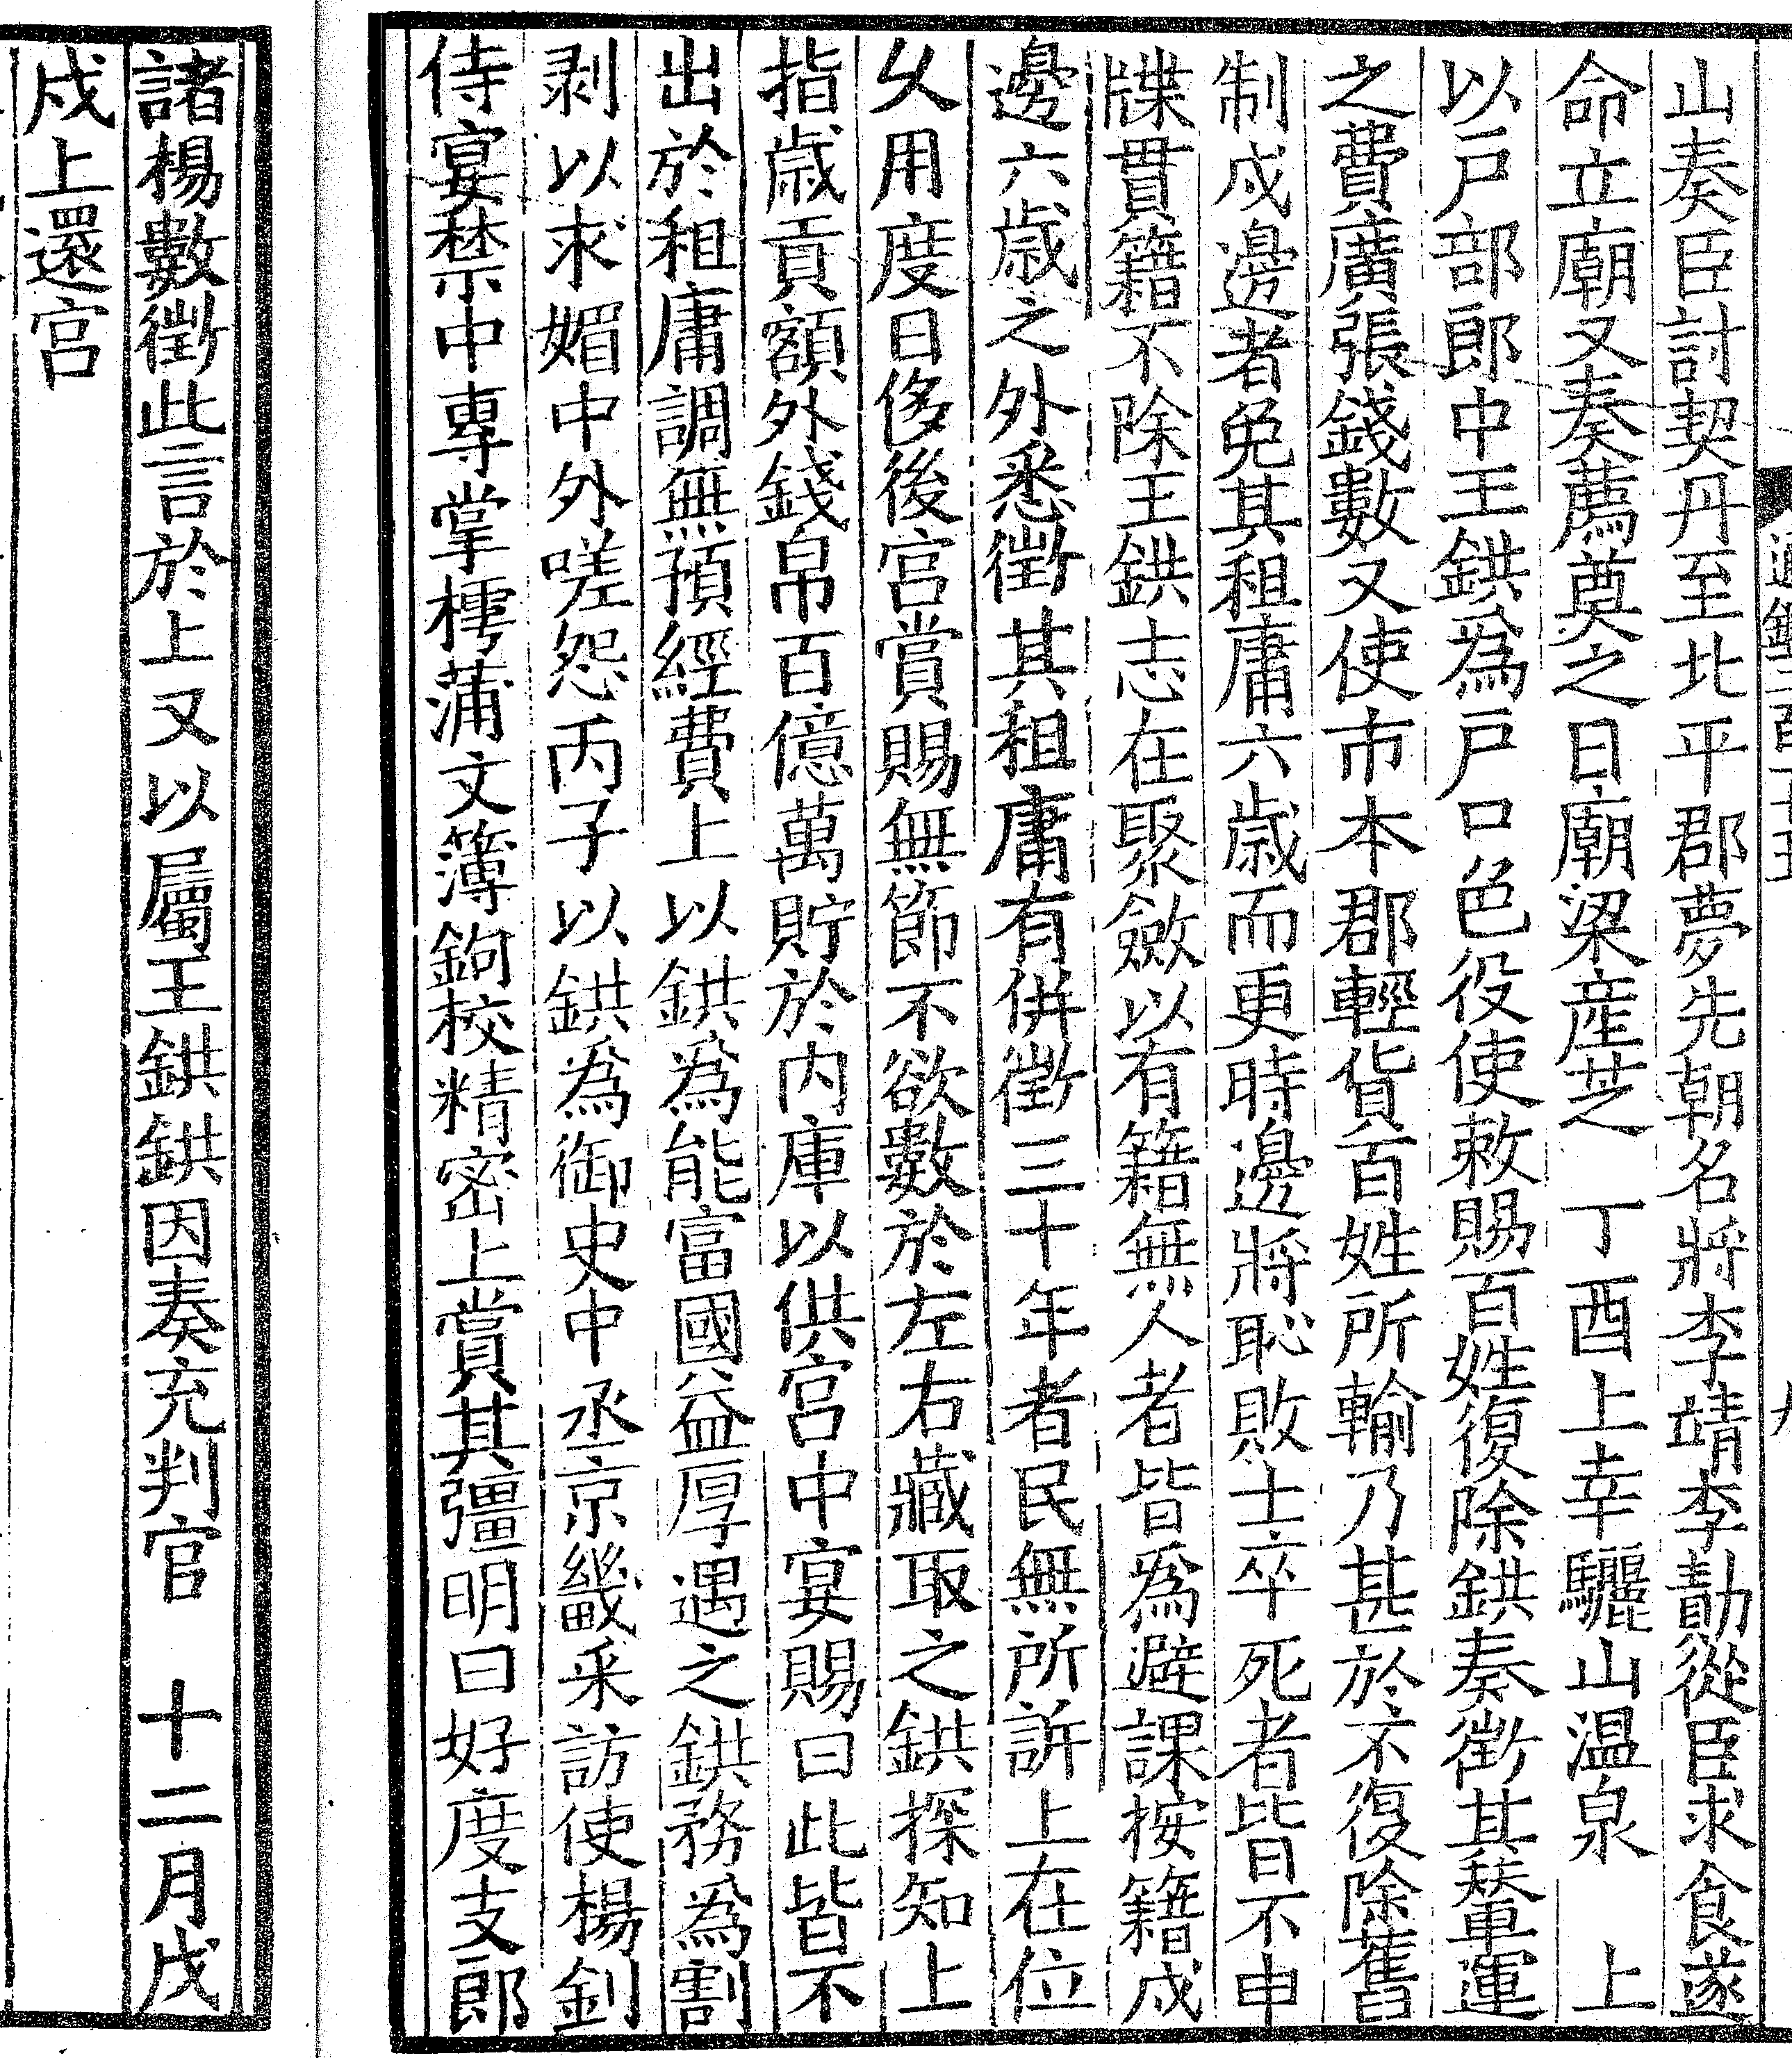 山奏臣討契丹至北平郡夢先朝名將李靖李勣從臣求食遂
命立廟又奏薦奠之日廟梁産芝　丁酉上幸驪山温泉　上
以戸部郎中王鉷爲戸口色役使敕賜百姓復除鉷奏徵其輦運
之費廣張錢數又使市本郡輕貨百姓所輸乃甚於不復除舊
制戍邊者免其租庸六歳而更時邊將恥敗士卒死者皆不申
牒貫籍不除王鉷志在聚斂以有籍無人者皆爲避課按籍戍
邊六歳之外悉徵其租庸有併徵三十年者民無所訴上在位
乆用度日侈後宫賞賜無節不欲數於左右藏取之鉷探知上
指歳貢額外錢帛百億萬貯於内庫以供宫中宴賜曰此皆不
出於租庸調無預經費上以鉷爲能富國益厚遇之鉷務爲割
剥以求媚中外嗟怨丙子以鉷爲御史中丞京畿采訪使楊釗
侍宴禁中專掌樗蒲文簿鉤校精密上賞其彊明曰好度支郎
諸楊數徵此言於上又以屬王鉷鉷因奏充判官　十二月戊
戌上還宫